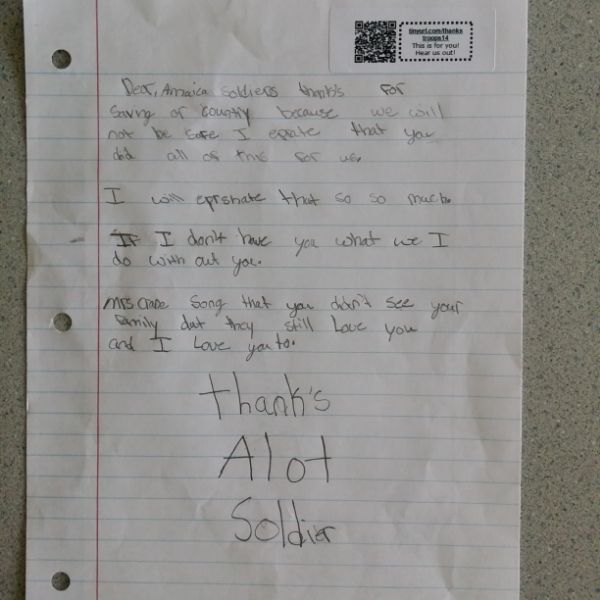 tinyurl.com/thanks
troops14
This is for you!
Hear us out!
Dear, Amaica soldiers thank's For
Saving or country because we will
not be safe I eprate that you
did all of this for us.
I will eprshate that so so much.
If I don't have you what we I
do with out you.
Mrs Crane Song that you didn't see your
family dut they still Love you
and I Love you to.
thank's
Alot
Soldier